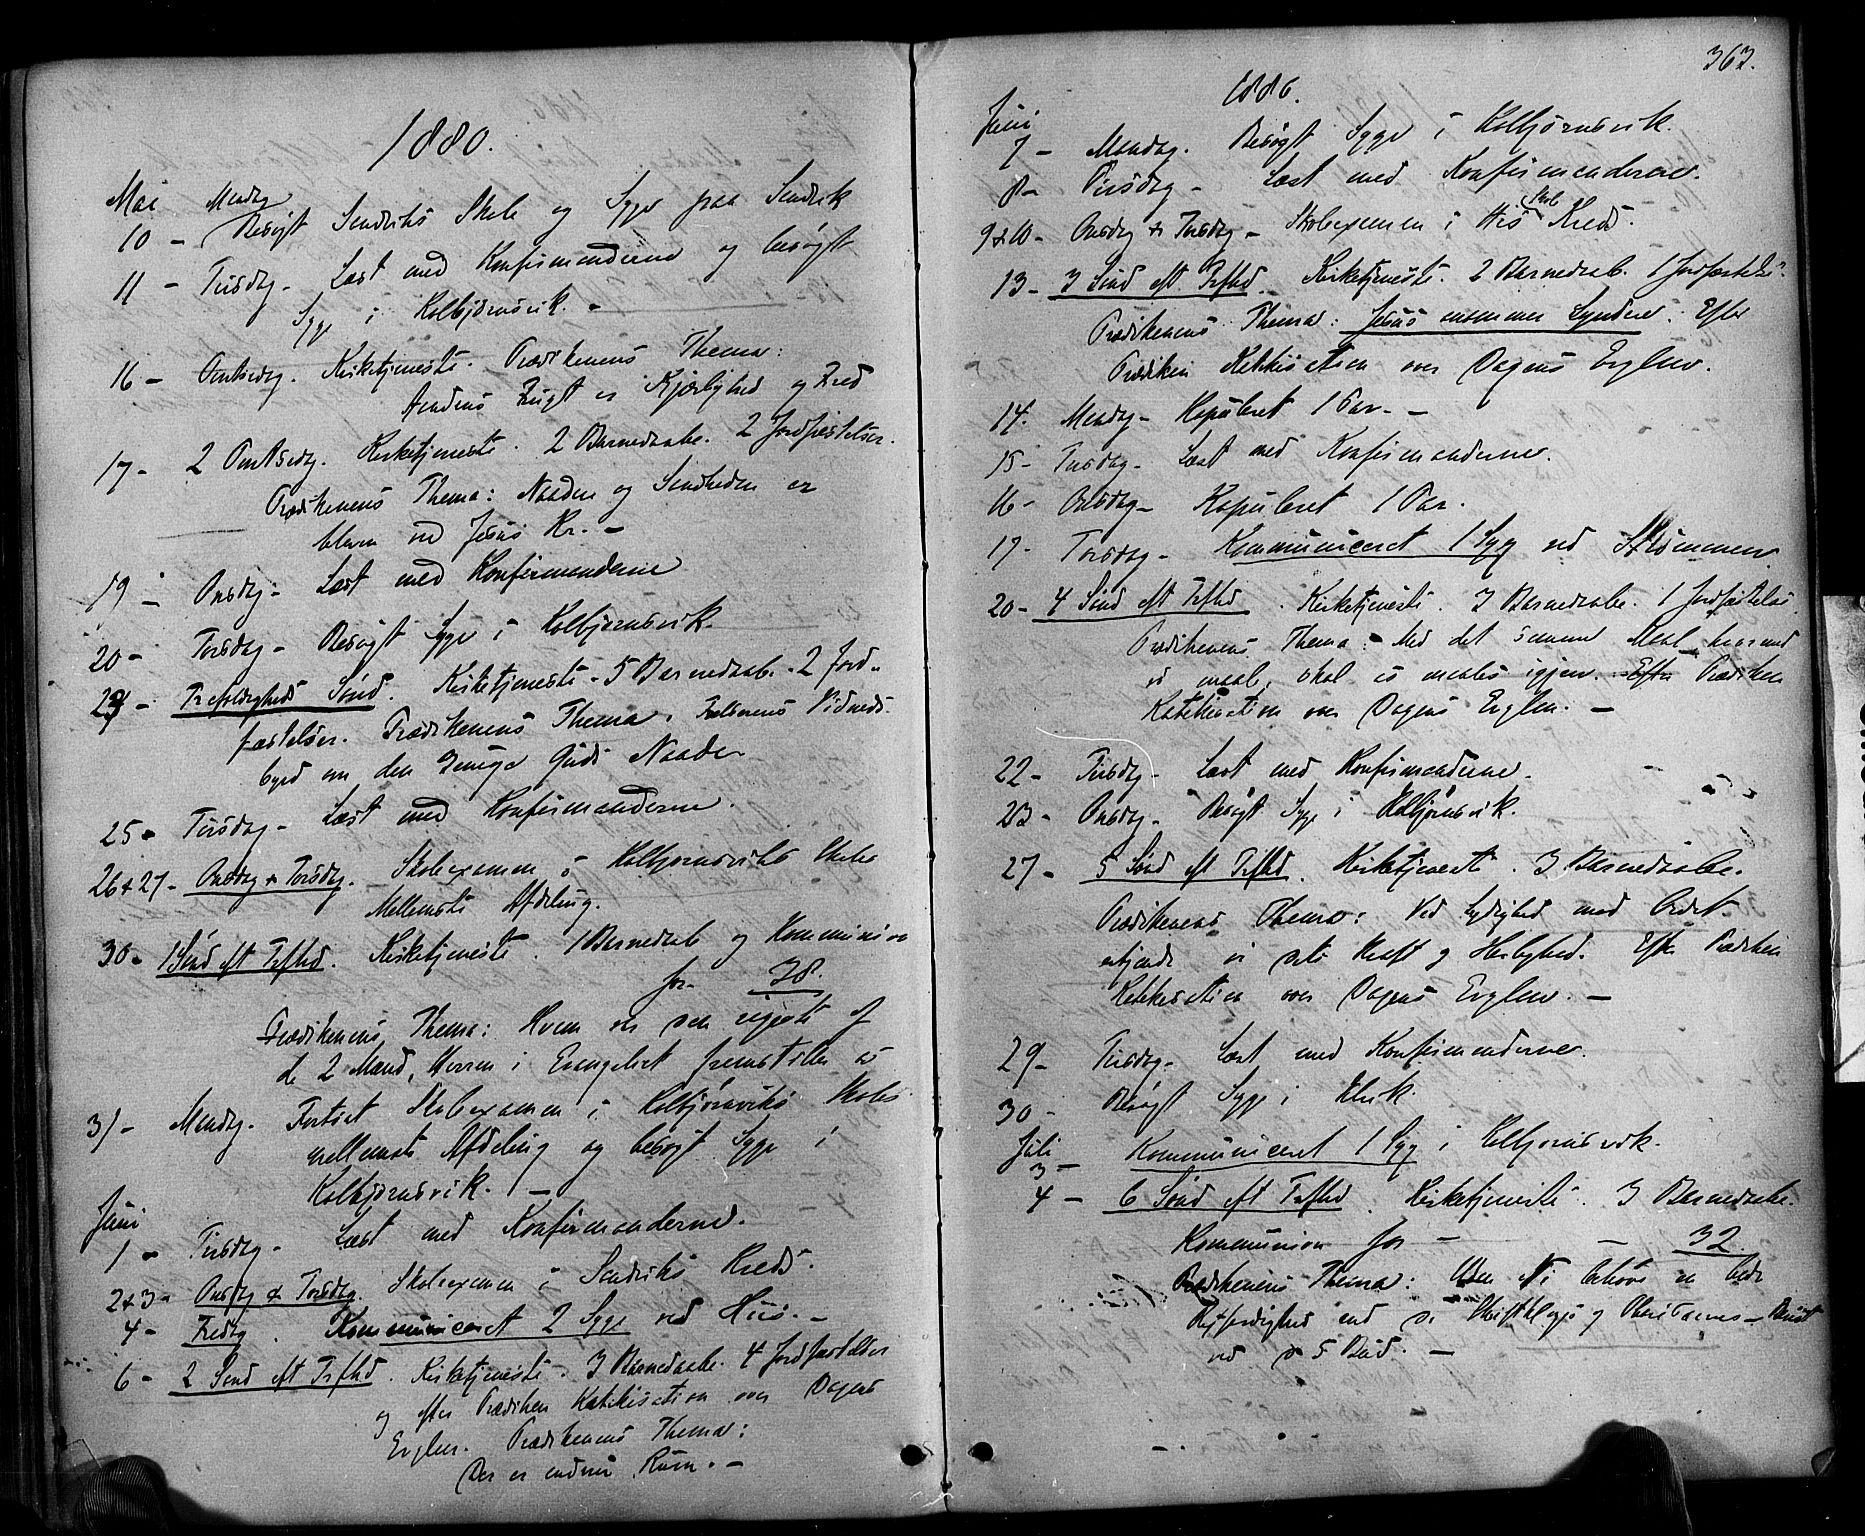 1880.
Mai Mandag
10 - Besøgt Sandviks Skole og Syge paa Sandvik
11 - Tirsdag. Læst med Konfirmanderne og besøgt
Syge i Kolbjørnsvik. -
16 - Kirketjeneste. Prædikenens Thema:
Aandens Frugt er Kjærlighed og Fred
17 - 2 Kirketjeneste. 2 Barnedaabe. 2 Jordfæstelser.
Prædikenens Thema: Naaden og Sandheden er
bleven ved Jesus Kr. -
19 - Onsdag - Læst med Konfirmanderne
20 - Torsdag - Besøgt Syge i Kolbjørnsvik.
23 - Trefoldigheds Sønd. Kirketjeneste - 5 Barnedaabe. 2 Jord-
fæstelser. Prædikenens Thema. Vidnes-
byrd om den Guds Naade
25 - Tirsdag - Læst med Konfirmanderne.
26 & 27 - Onsdag & Torsdag. Skoleexamen i Kolbjørnsviks Skoles
Mellemste Afdeling.
30 - 1 Sønd eft Trefhd. Kirketjeneste. 1 Barnedaab og Kommunion
for - 38.
Prædikenens Thema: Hvem var den rigeste af
de 2 Mænd, Herren i Evangeliet fremstiller os
31 - Mandag. Fortsat Skoleexamen i Kolbjørnsviks Skoles
mellemste Afdeling og besøgt Syge i
Kolbjørnsvik. -
Juni
1 - Tirsdag - Læst med Konfirmanderne.
2 & 3 - Onsdag & Torsdag. Skoleexamen i Sandviks Kreds.
4 - Fredag. Kommuniceret 2 Syge ved His. -
6 - 2 Sønd eft Trefhd. Kirketjeneste. 3 Barnedaabe. 4 Jordfæstelser
og efter Prædiken Katekisation over Dagens
Evglm. Prædikenens Thema:
Der er endnu Rum. -
363.
1886.
Juni
7 - Mandag. Besøgt Syge i Kolbjørnsvik.
8 - Tirsdag - Læst med Konfirmanderne.
9 & 10 - Onsdag & Torsdag - Skoleexamen i His Skol Kreds.
13 - 3 Sønd eft Trefhd. Kirketjeneste. 2 Barnedaab. 1 Jordfæstelse.
Prædikenens Thema: Jesus annammer Syndere. Efter
Prædiken Katekisation over Dagens Evglm.
14. Mandag - Kopuleret 1 Par. -
15 - Tirsdag - Læst med Konfirmanderne.
16 - Onsdag - Kopuleret 1 Par.
17 - Torsdag - Kommuniceret 1 Syg ved Strømmen
20 - 4 Sønd eft Trefhd. Kirketjeneste. 3 Barnedaabe. 1 Jordfæstelse.
Prædikenens Thema: Med det samme Maal, hvormed
vi maale, skal os maales igjen. Efter Prædiken
Katekisation over Dagens Evglm. -
22 - Tirsdag - Læst med Konfirmanderne.
23 - Onsdag - Besøgt Syge i Kolbjørnsvik.
27 - 5 Sønd eft Trefhd. Kirketjeneste. 3 Barnedaabe.
Prædikenens Thema: Ved Lydighed mod Ordet
erfarede vi dets Kraft og Herlighed. Efter Prædiken
Katekisation over Dagens Evglm. -
29 - Tirsdag - Læst med Konfirmanderne.
30 - Besøgt Syge i
Juli
3 - Kommuniceret 1 Syg i Kolbjørnsvik.
4 - 6 Sønd eft Trefhd. Kirketjeneste. 3 Barnedaabe.
Kommunion for - - 32
Prædikenens Thema: Vi behøve en bedre
Retfærdighed end de Skriftkloges og Pharisæernes - Bevist
ved de 5 Bud. -